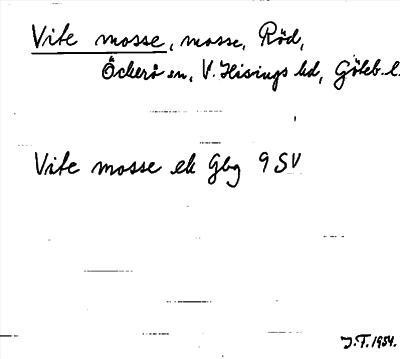 Vite mosse, mosse, Röd,
Öckerö sn, V. Hisings hd, Göteb. l.
Vite mosse ek Gbg 9 SV
J.T. 1954.